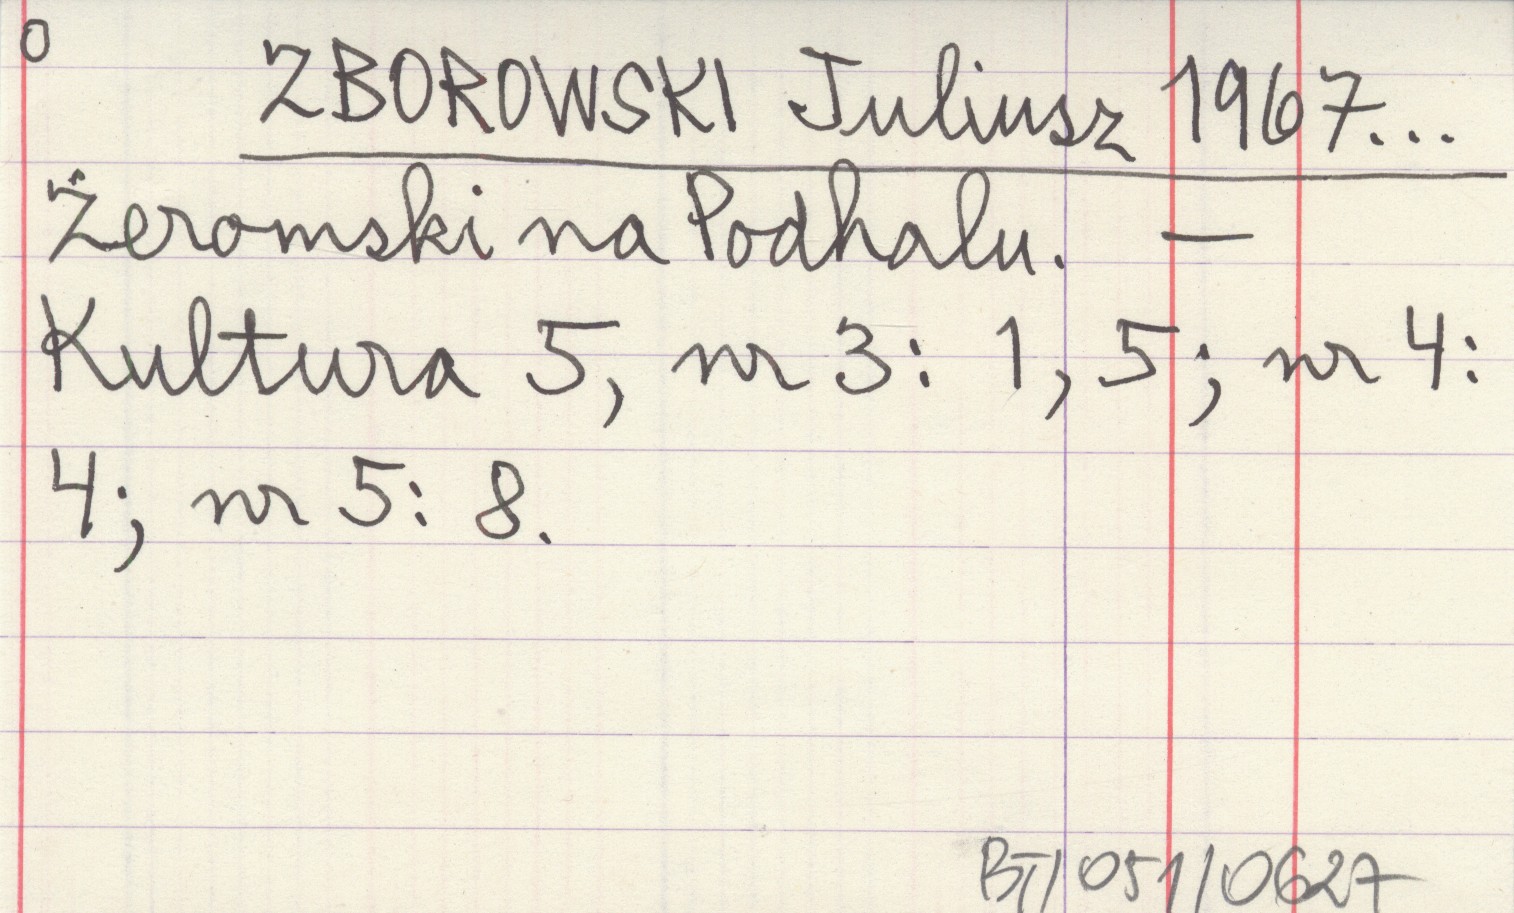 0
ZBOROWSKI Juliusz 1967...
Żeromski na Podhalu. —
Kultura 5, nr 3: 1, 5; nr 4:
4; nr 5: 8.
BT/051/0627